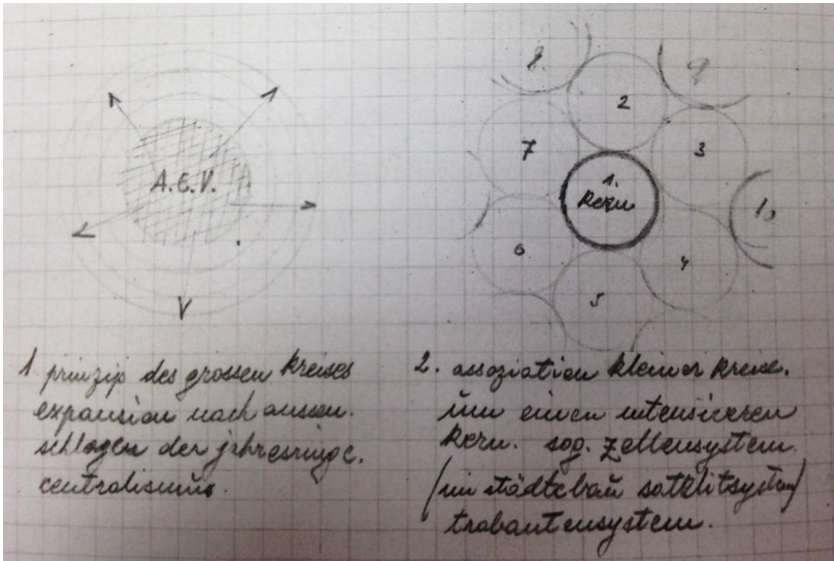 A.E.V.
8.
9
2
7
3
1.
Kern
10
6
4
5
1. prinzip des grossen kreises
expansion nach aussen.
schlagen der jahresringe.
centralismus.
2. assoziation kleiner kreise.
um einen intensiveren
kern. sog. zellensystem
(im städtebau satellitsystem)
trabantensystem.